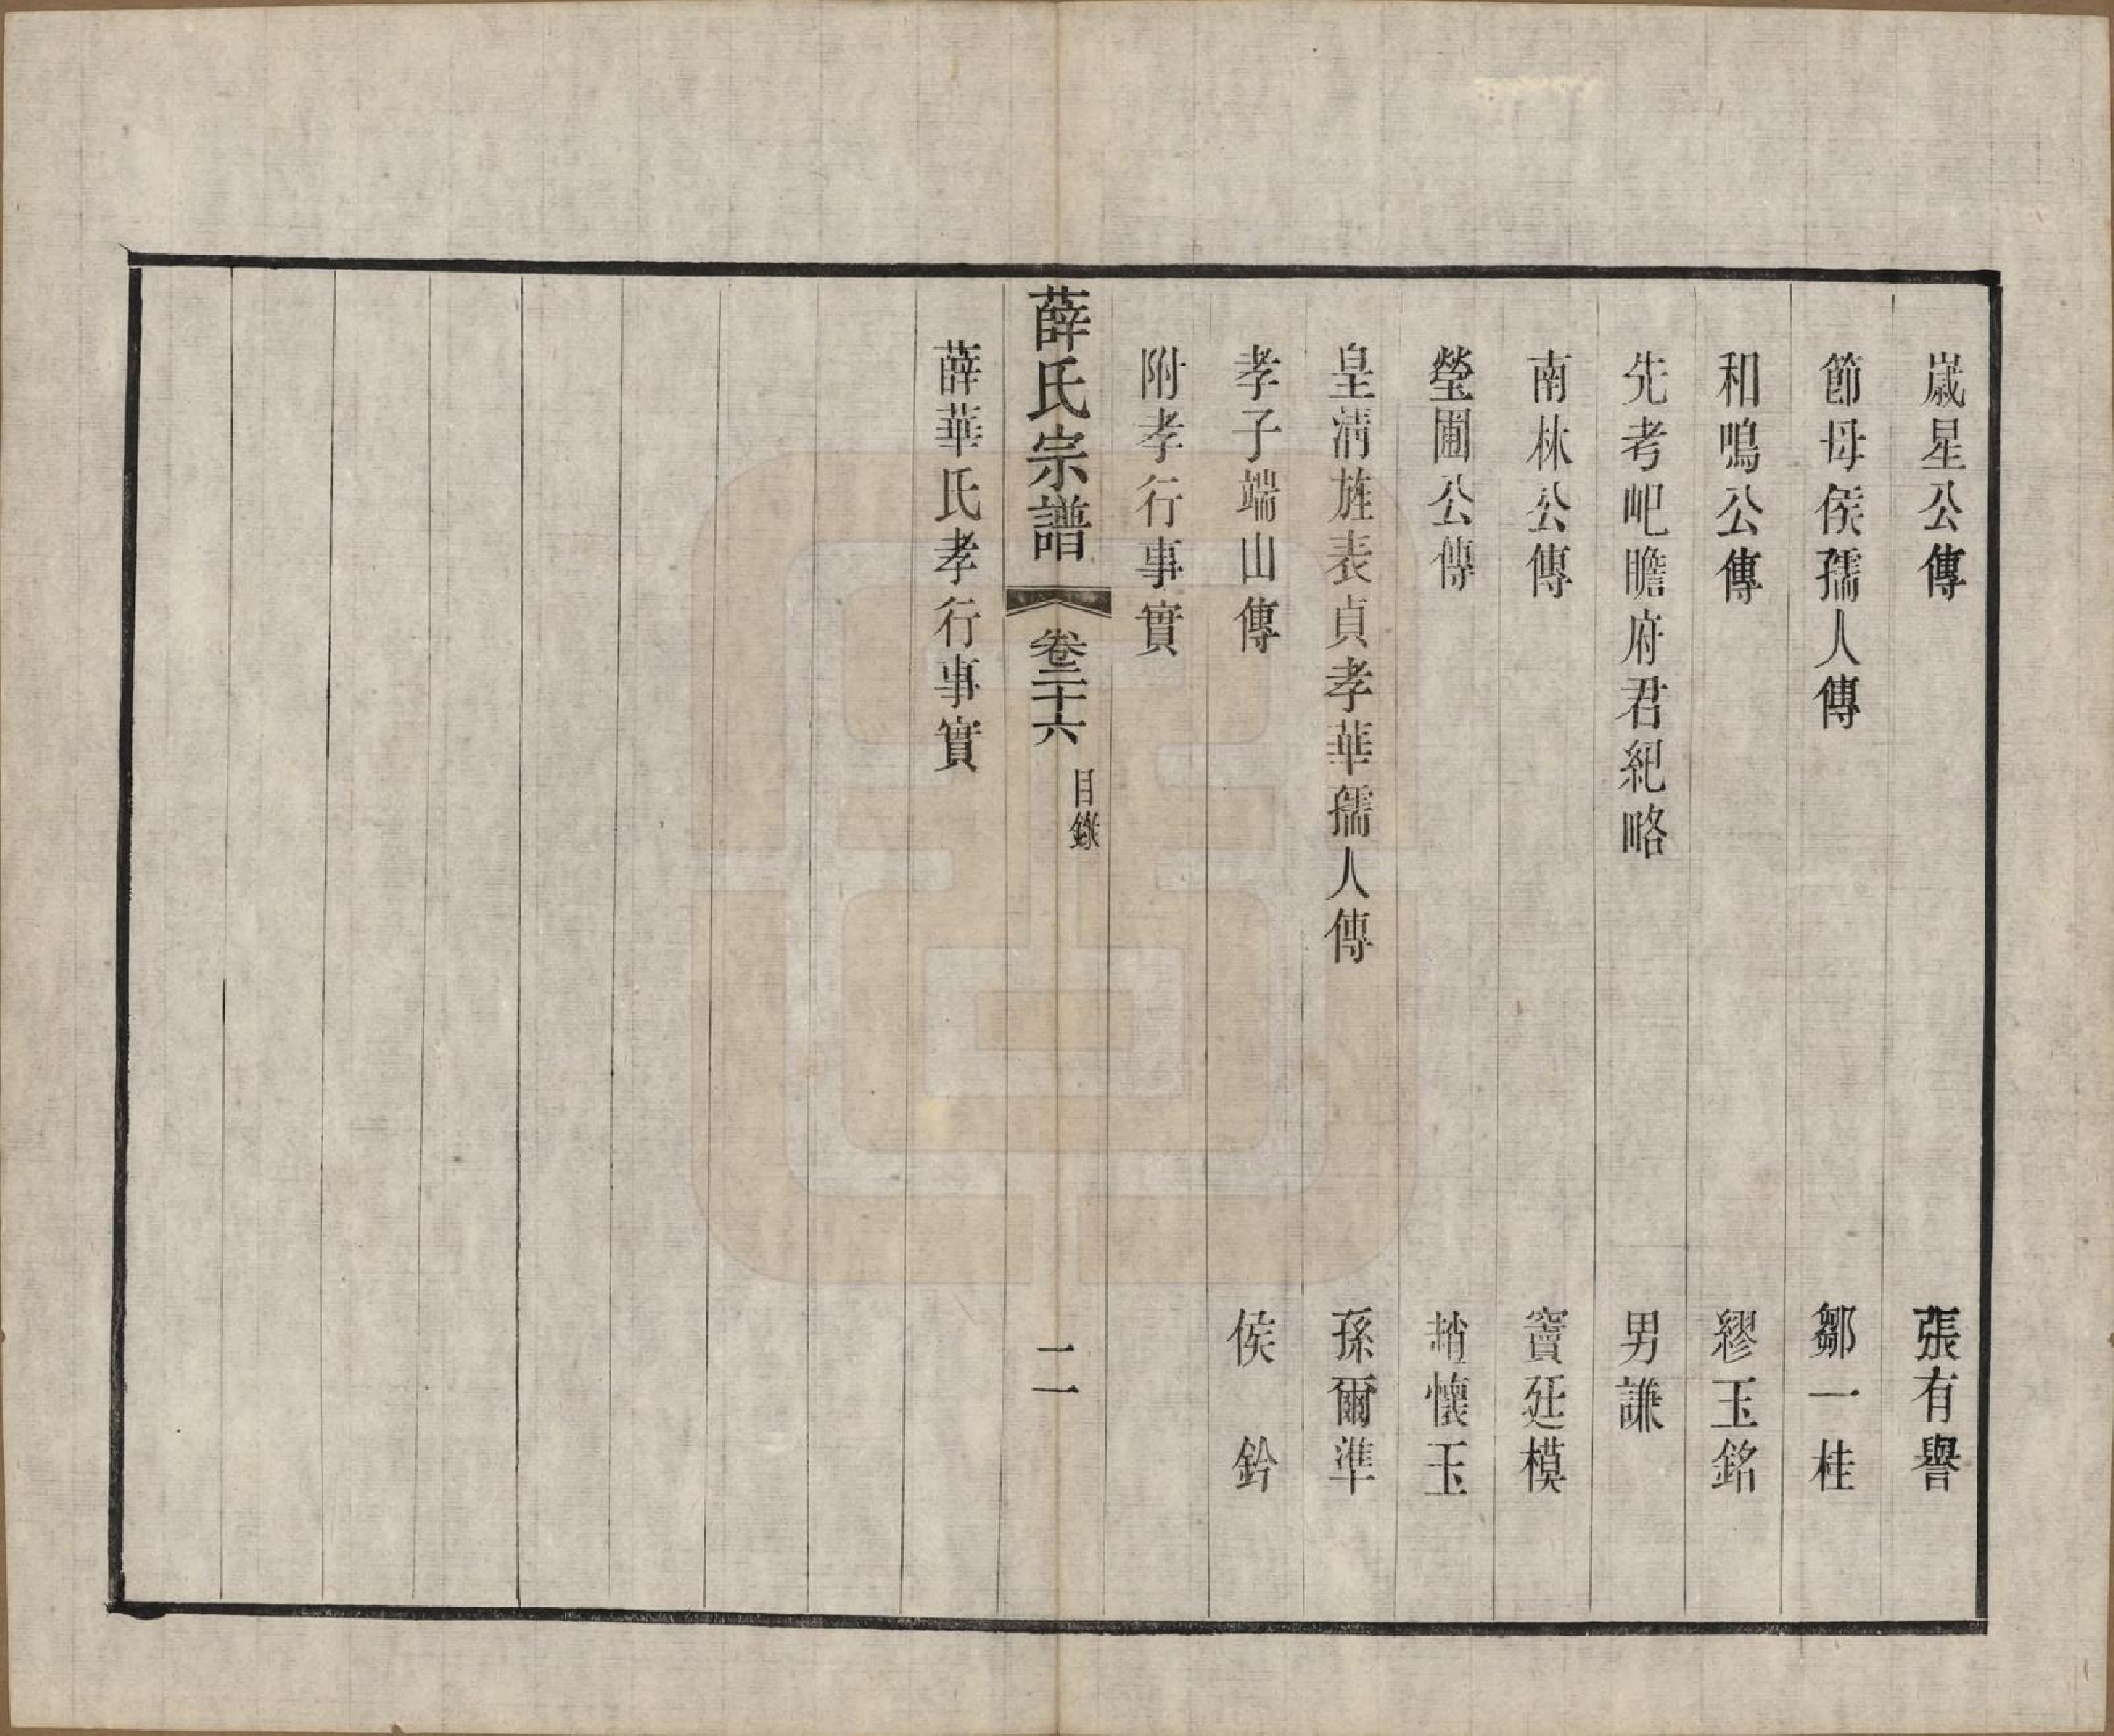 嵗星公傳　張有譽
節母侯孺人傳　鄒一桂
和鳴公傳　繆玉銘
先考屺瞻府君紀略　男謙
南林公傳　竇廷模
瑩圃公傳　趙懷玉
皇淸旌表貞孝華孺人傳　孫爾準
孝子端山傳　侯鈐
附孝行事實
薛氏宗譜　卷二十六　目錄　二
薛華氏孝行事實